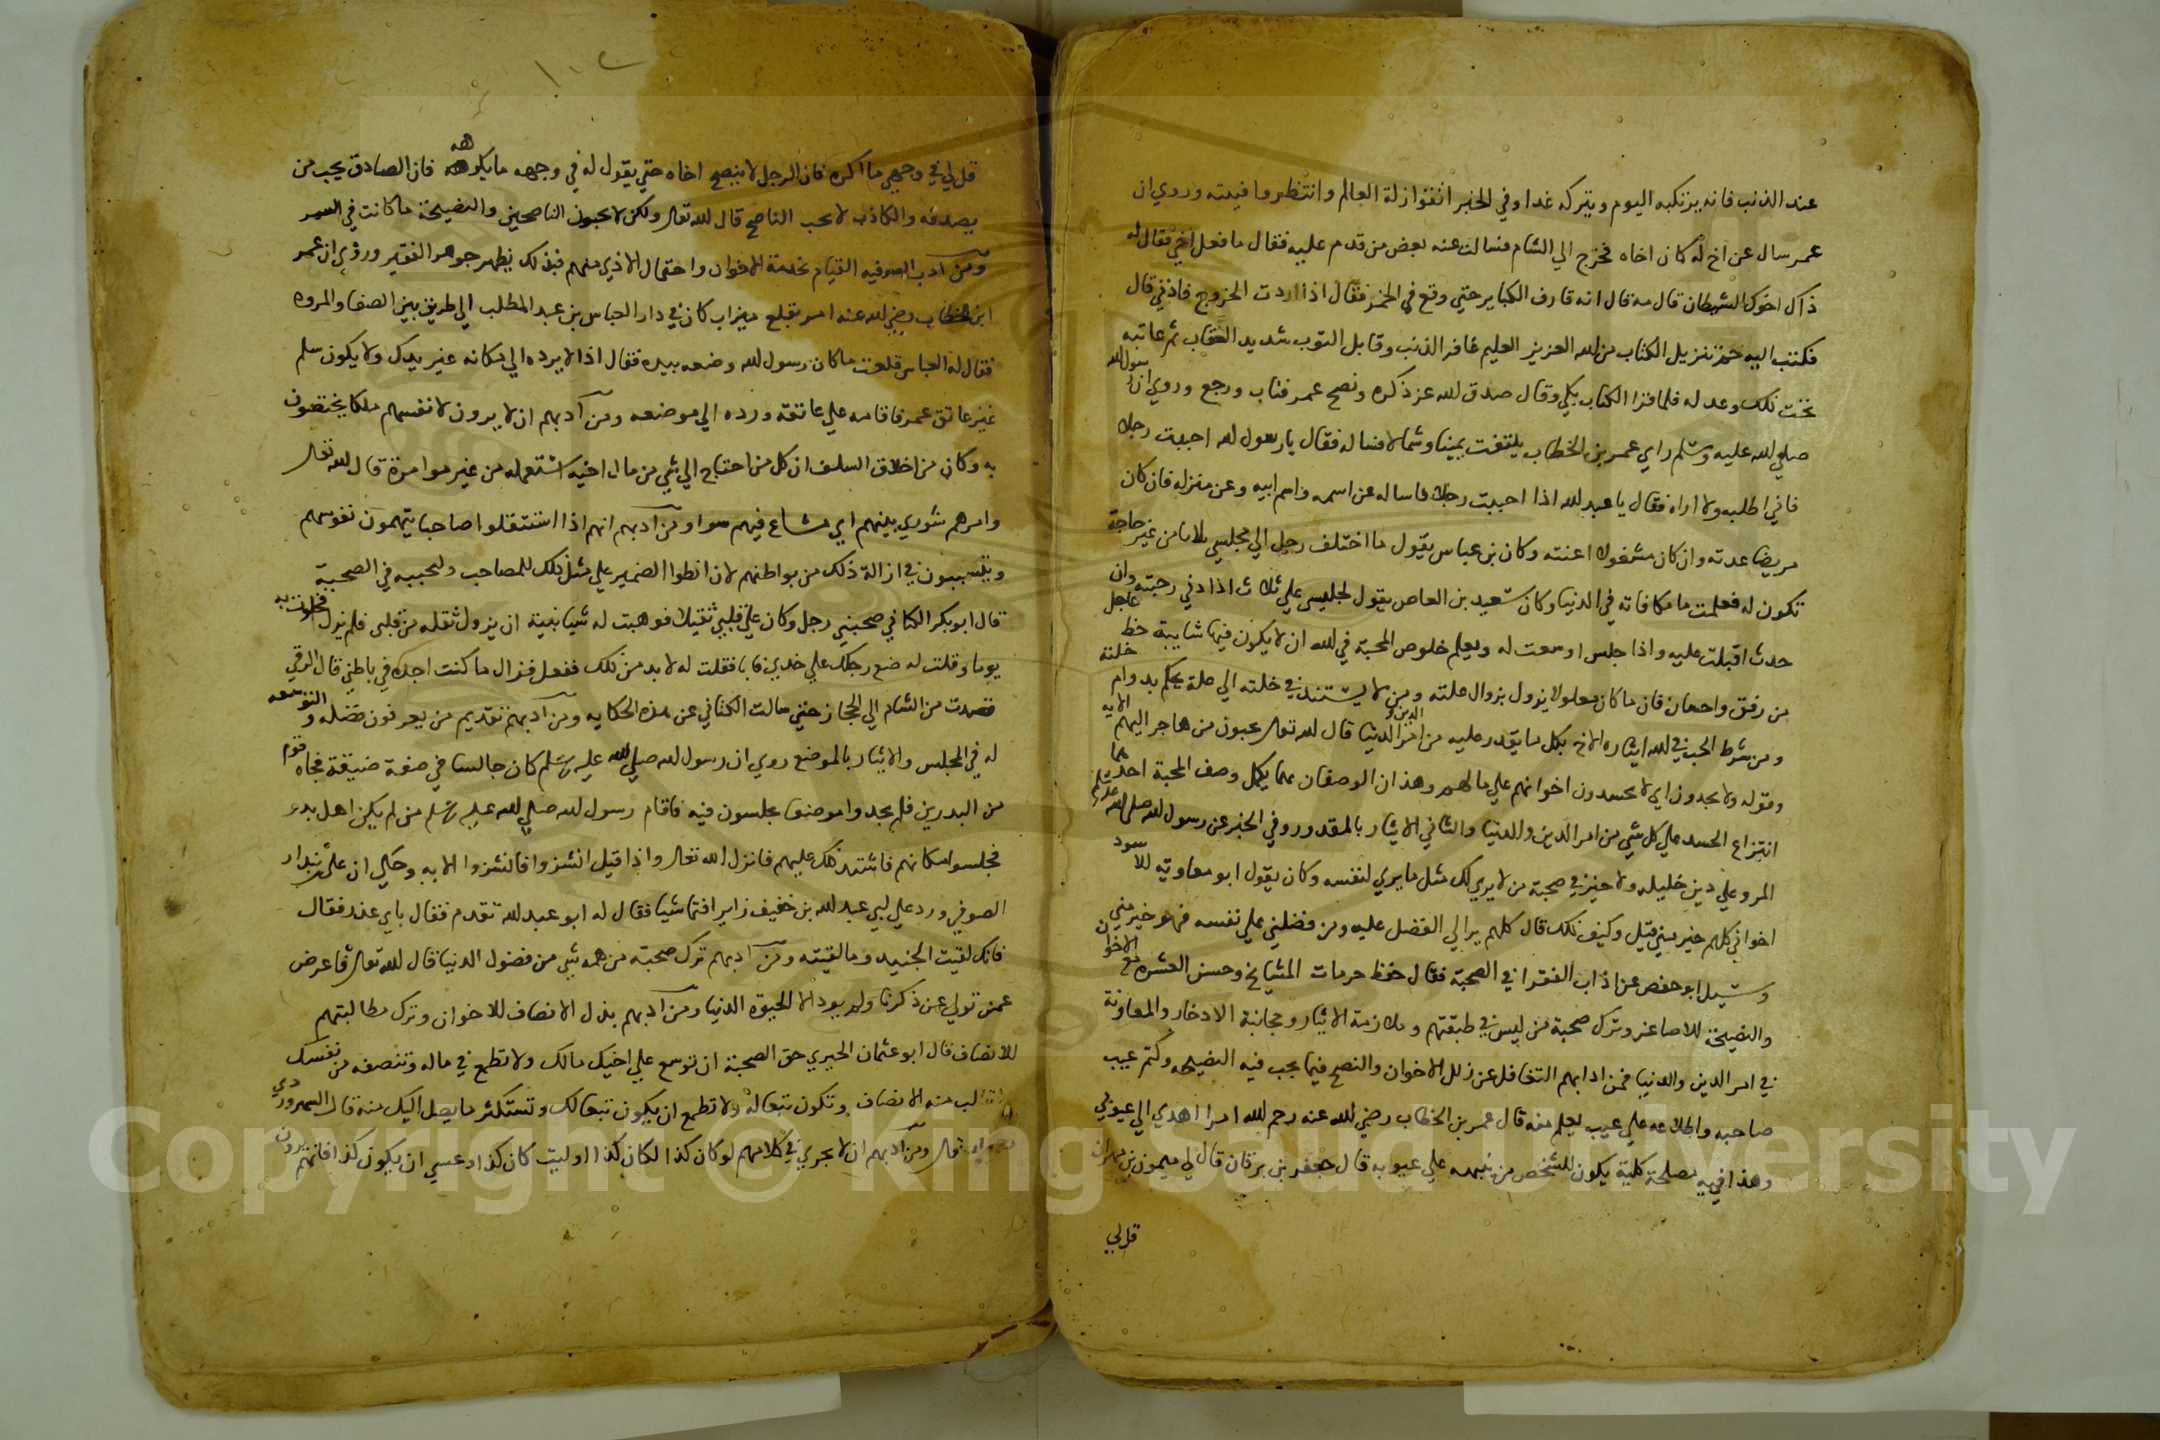 عند الذنب فانه يرتكبه اليوم ويتركه غدا وفي الخبر اتقوا زلة العالم وانتظروا فيئته وروي ان
عمر سال عن اخ له كان اخاه فخرج الي الشام فسال عنه بعض من قدم عليه فقال ما فعل اخي فقال له
ذاك اخوك الشيطان قال مه قال انه قارف الكباير حتي وقع في الخمر فقال اذا اردت الخروج فاذني قال
فكتب اليه حم تنزيل الكتاب من الله العزيز العليم غافر الذنب وقابل التوب شديد العقاب ثم عاتبه
تحت ذلك وعدله فلما قرا الكتاب بكي وقال صدق الله عز ذكره ونصح عمر فتاب ورجع وروي ان رسول الله
صلي الله عليه وسلم راي عمر بن الخطاب يلتفت يمينا وشمالا فساله فقال يا رسول الله احببت رجلا
فاني اطلبه ولا اراه فقال يا عبد الله اذا احببت رجلا فاساله عن اسمه واسم ابيه وعن منزله فان كان
مريضا عدته وان كان مشغولا اعنته وكان بن عباس يقول ما اختلف رجل الي مجلسي ثلاثا من غير حاجة
تكون له فعلمت ما مكافاته في الدنيا وكان سعيد بن العاص يقول لجليسي علي ثلاث اذا دني رحبته وان
حدث اقبلت عليه واذا جلس اوسعت له ويعلم خلوص المحبة في الله ان لا يكون فيها شايبة حظ عاجل
من رفق واحسان فان ما كان معلولا يزول بزوال علته ومن لا يستند في خلته الي علة يحكم بدوام خلته
ومن شرط الحب في الله ايثاره الاخ بكل ما يقدر عليه من امر الدين والدنيا قال الله تعالى يحبون من هاجر اليهم الايه
وقوله ولا يجدون اي لا يحسدون اخوانهم علي ما لهم وهذان الوصفان بهما يكمل وصف المحبة احدهما
انتزاع الحسد علي كل شي من امر الدين والدنيا والثاني الايثار بالمقدور وفي الخبر عن رسول الله صلي الله عليه وسلم
المرو علي دين خليله ولا خير في صحبة من لا يري لك مثل ما يري لنفسه وكان يقول ابو معاويه للاسود
اخواني كلهم خير مني قيل وكيف ذلك قال كلهم يرا لي الفضل عليه ومن فضلني علي نفسه فهو خير مني
وسيل ابو حفص عن اداب الفقرا في الصحبة فقال حفظ حرمات المشايخ وحسن العشره مع الاخوان
والنصيحة للاصاغر وترك صحبة من ليس في طبقتهم وملازمة الايثار ومجانبة الادخار والمعاونة
في امر الدين والدنيا فمن ادابهم التغافل عن زلل الاخوان والنصح فيما يجب فيه النصيحه وكتم عيب
صاحبه واطلاعه علي عيب يعلم منه قال عمر بن الخطاب رضي الله عنه رحم الله امرا اهدي الي عيوبي
وهذا فيه مصلحة كلية يكون للشخص من ينبهه علي عيوبه قال جعفر بن برقان قال لي ميمون بن مهران
قل لي
١٠٢
قل لي في وجهي ما اكره فان الرجل لا ينصح اخاه حتي يقول له في وجهه ما يكرهه فان الصادق يحب من
يصدقه والكاذب لا يحب الناصح قال الله تعالى ولكن لا تحبون الناصحين والنصيحة ما كانت في السر
ومن آداب الصوفيه القيام بخدمة الاخوان واحتمال الاذي منهم فبذلك يظهر جوهر الفقير وروي ان عمر
ابن الخطاب رضي الله عنه امر بقلع ميزاب كان في دار العباس بن عبد المطلب الي طريق بين الصفا والمروه
فقال له العباس قلعت ما كان رسول الله وضعه بيده فقال اذا لا يرده الي مكانه غير يدك ولا يكون سلم
غير عاتق عمر فاقامه علي عاتقه ورده الي موضعه ومن آدبهم ان لا يرون لانفسهم ملكا يختصون
به وكان من اخلاق السلف ان كل من احتاج الي شي من مال اخيه استعمله من غير موامرة قال الله تعالى
وامرهم شوري بينهم اي مشاع فيهم سوا ومن آدبهم انهم اذا استثقلوا صاحبا يتهمون نفوسهم
ويتسببون في ازالة ذلك من بواطنهم لان انطوا الضمير علي مثل ذلك للمصاحب وليجيه في الصحبة
قال ابو بكر الكتاني صحبني رجل وكان علي قلبي ثقيلا فوهبت له شيا بنية ان يزول ثقله من قلبي فلم يزل فخلوت به
يوما وقلت له ضع رجلك علي خدي فابا فقلت له لابد من ذلك ففعل فزال ما كنت اجده في باطني قال الرقي
قصدت من الشام الي الحجاز حتي سالت الكتاني عن هذه الحكايه ومن آدبهم تقديم من يعرفون فضله والتوسعه
له في المجلس والايثار بالموضع روي ان رسول الله صلي الله عليه وسلم كان جالسا في صفة ضيقة فجاه قوم
من البدرين فلم يجدوا موضعا يجلسون فيه فاقام رسول الله صلي الله عليه وسلم من لم يكن اهل بدر
فجلسوا مكانهم فاشتد ذلك عليهم فانزل الله تعالى واذا قيل انشزوا فانشزوا الايه وحكي ان علي بن بندار
الصوفي ورد علي ابي عبد الله بن خفيف زايرا فتماشيا فقال له ابو عبد الله تقدم فقال باي عذر فقال
فانك لقيت الجنيد وما لقيته ومن آدبهم ترك صحبة من همه شي من فضول الدنيا قال الله تعالى فاعرض
عمن تولي عن ذكرنا ولم يرد الا الحيوة الدنيا ومن آدبهم بذل الانصاف للاخوان وترك مطالبتهم
للانصاف قال ابو عثمان الحيري حق الصحبة ان توسع علي اخيك مالك ولا تطمع في ماله وتنصفه من نفسك
ولا تطلب منه الانصاف وتكون تبعا له ولا تطمع ان يكون تبعا لك وتستكثر ما يصل اليك منه قال السهروردي
ومن آدبهم ان لا يجري في كلامهم لو كان كذا لكان كذا او ليت كان كذا وعسي ان يكون كذا فانهم يرون
Copyright © King Saud University